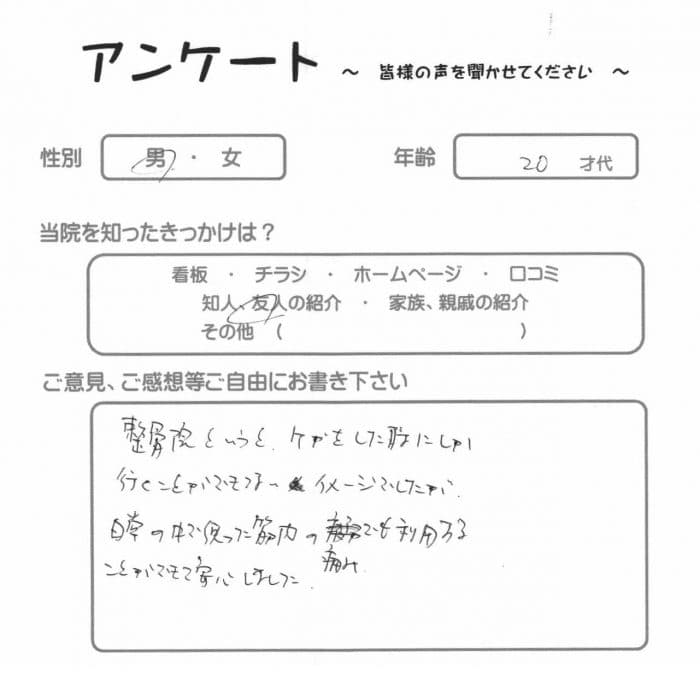 アンケート ～ 皆様の声を聞かせてください ～
性別 男 ・ 女 年齢 20 才代
当院を知ったきっかけは？
看板 ・ チラシ ・ ホームページ ・ 口コミ
知人、友人の紹介 ・ 家族、親戚の紹介
その他 （ ）
ご意見、ご感想等ご自由にお書き下さい
整骨院というと、ケガをした時にしか
行くことができない イメージでしたが、
日常の中で使った筋肉の でも利用する
痛み
ことができて安心しました。